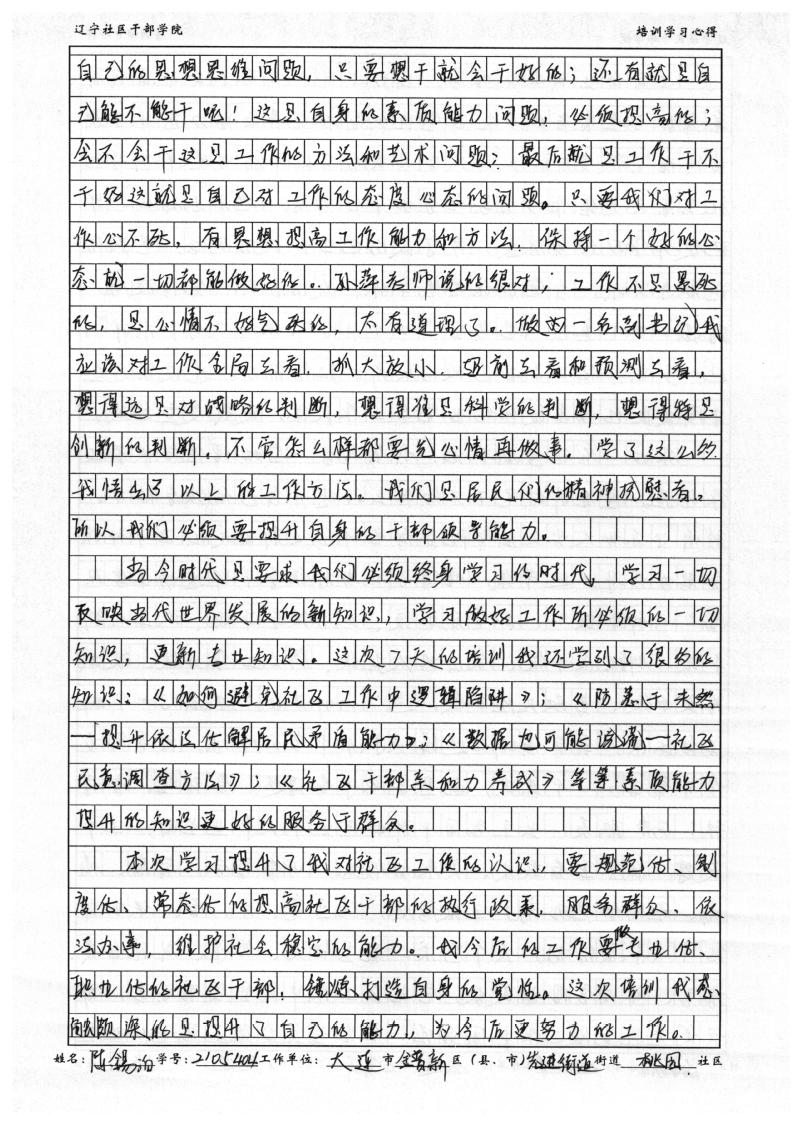 辽宁社区干部学院 培训学习心得
自己的思想思维问题，只要想干就会干好的；还有就是自
己能不能干呢！这是自身的素质能力问题，必须提高的；
会不会干这是工作的方法和艺术问题；最后就是工作干不
干好这就是自己对工作的态度心态的问题。只要我们对工
作心不死，有思想提高工作能力和方法，保持一个好的心
态就一切都能做好的。孙萍老师说的很对；工作不是累死
的，是心情不好气死的，太有道理了。做为一名副书记我
应该对工作全局去看，抓大放小，超前去看和预测去看，
想得远是对战略的判断，想得准是科学的判断，想得特是
创新的判断。不管怎么样都要先心情再做事。学了这么多
我悟出了以上的工作方法。我们是居民们的精神抚慰者。
所以我们必须要提升自身的干部领导能力。
当今时代是要求我们必须终身学习的时代，学习一切
反映当代世界发展的新知识，学习做好工作所必须的一切
知识，更新专业知识。这次7天的培训我还学到了很多的
知识：《如何避免社区工作中逻辑陷阱》；《防患于未然
—提升依法化解居民矛盾能力》；《数据也可能说谎—社区
民意调查方法》；《社区干部亲和力养成》等等素质能力
提升的知识更好的服务于群众。
本次学习提升了我对社区工作的认识，要规范化、制
度化、常态化的提高社区干部的执行政策，服务群众、依
法办事，维护社会稳定的能力。我今后的工作要做专业化、
职业化的社区干部；锤炼打造自身的党性。这次培训我感
触颇深的是提升了自己的能力，为今后更努力的工作。
姓名：陈锡 学号：2105404 工作单位：大连市金普新区（县、市）先进街道街道 桃园 社区